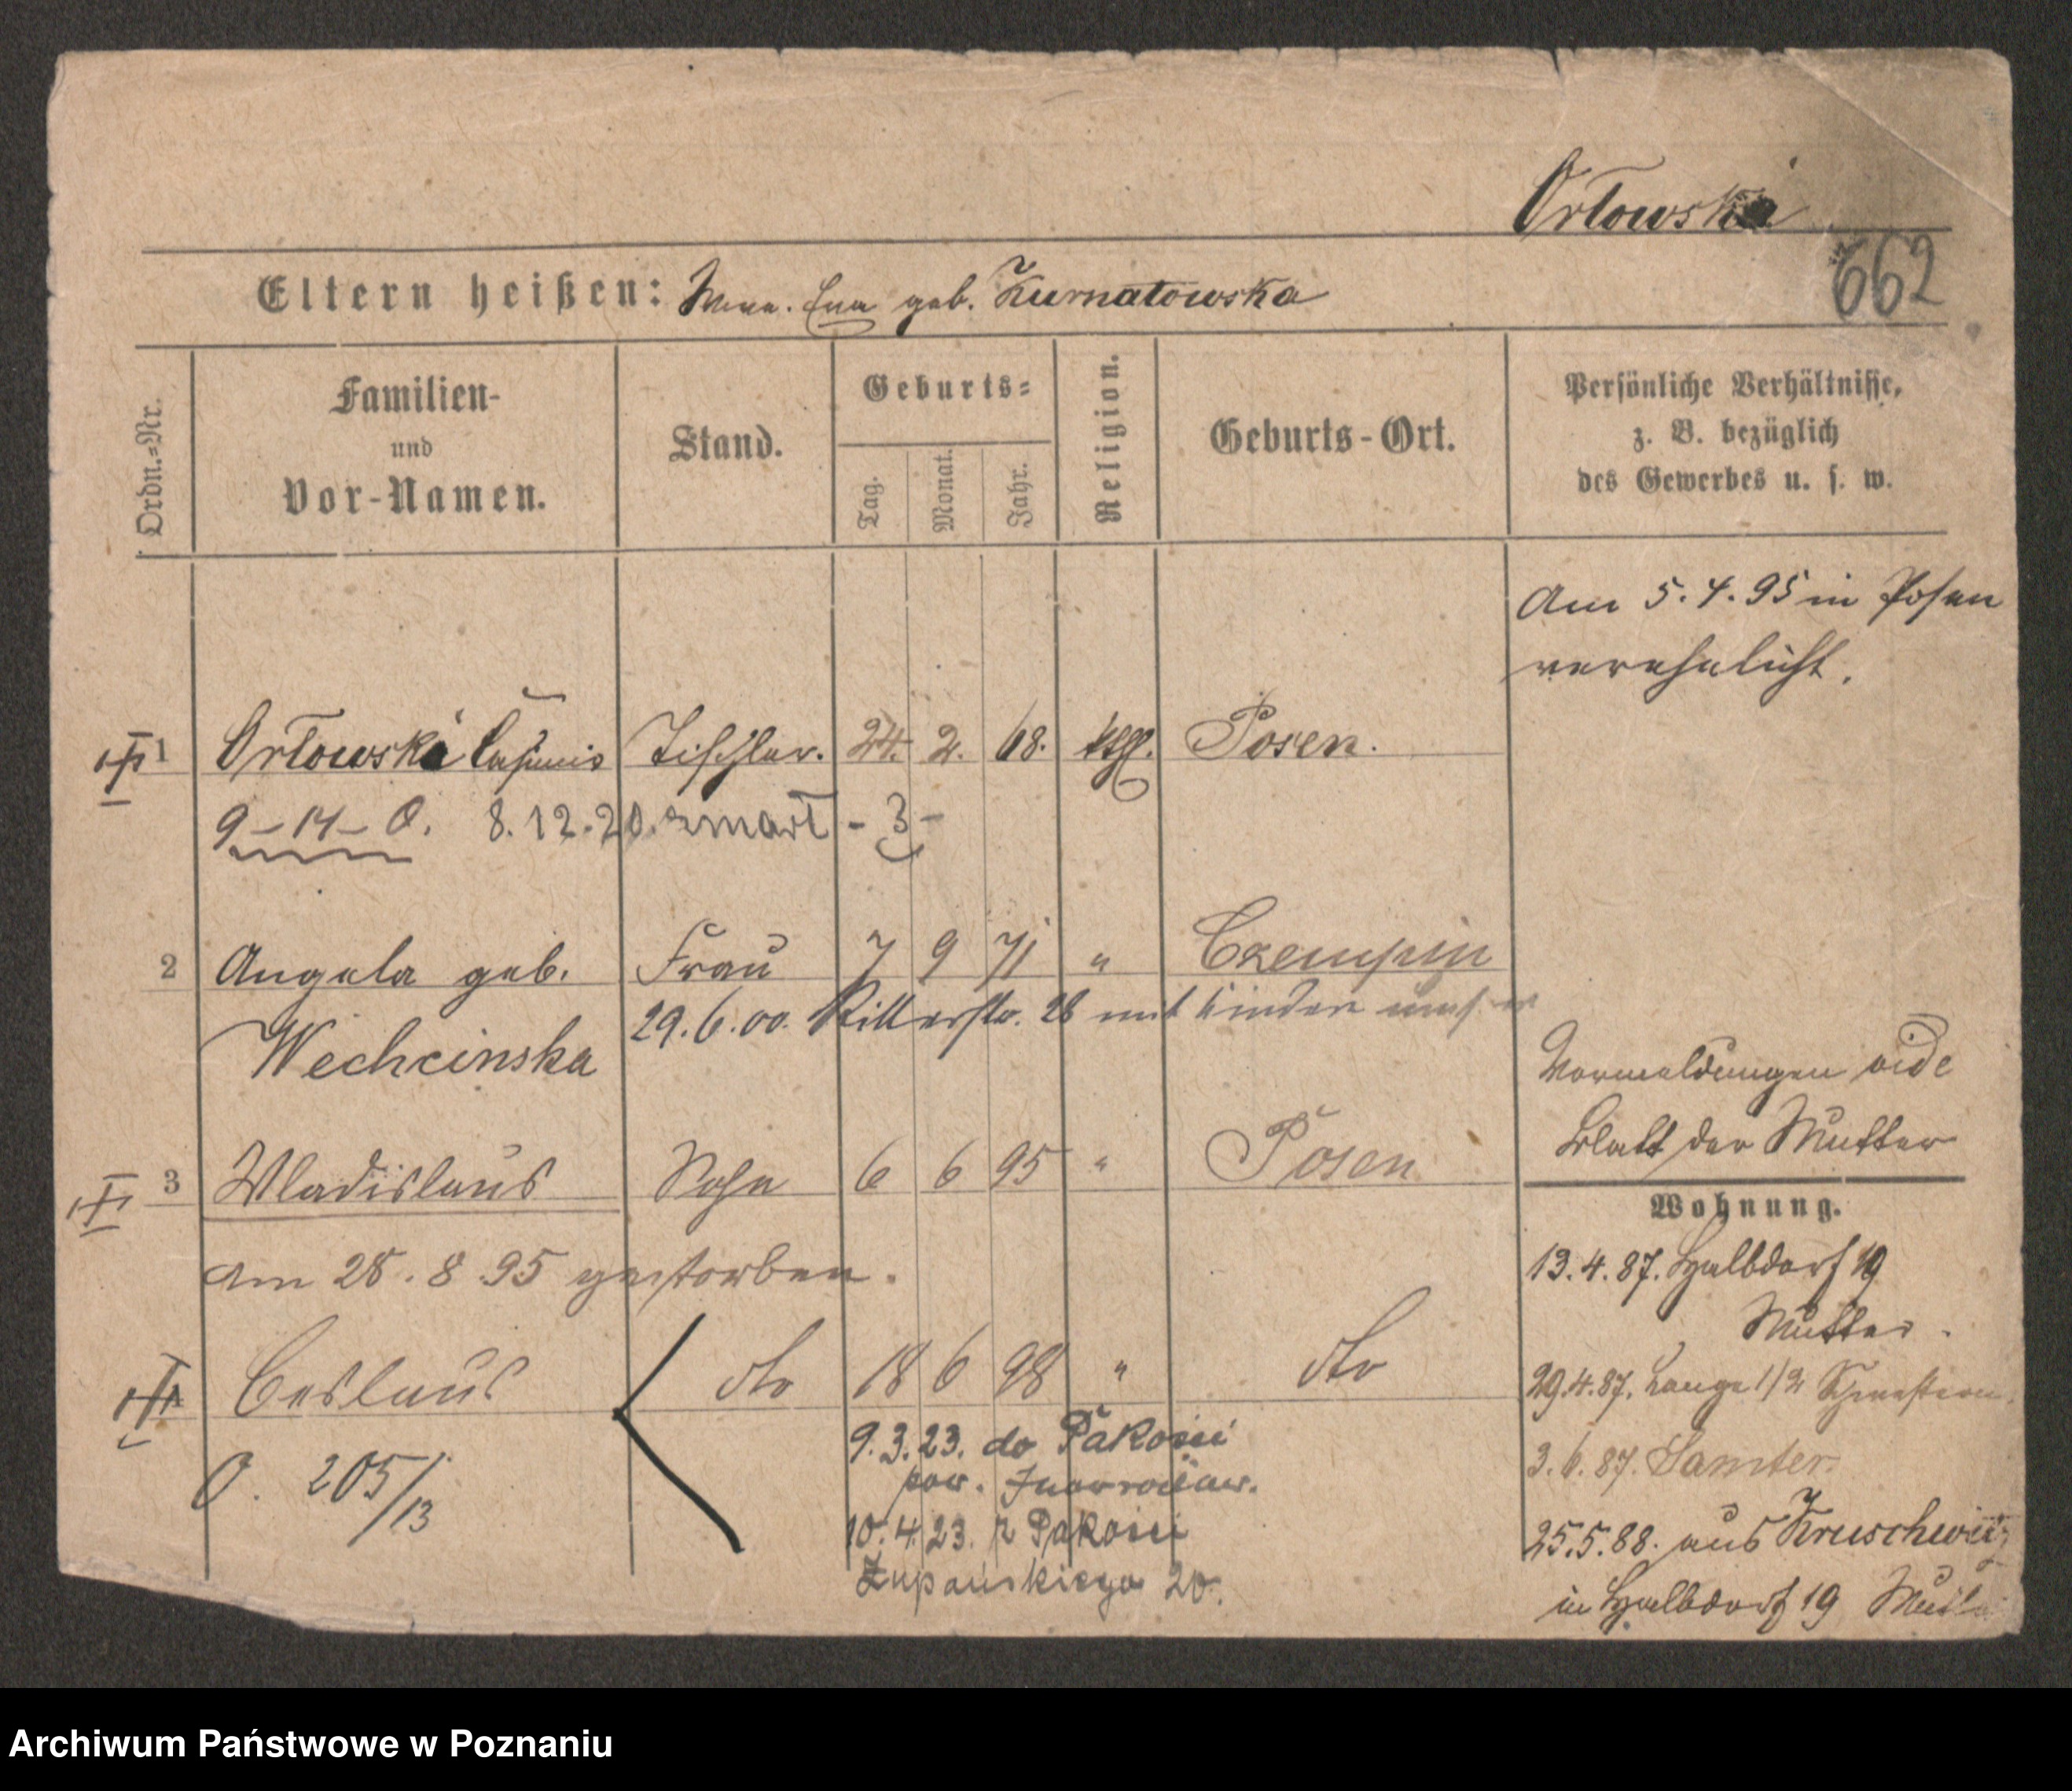 Orłowski
662
Eltern heißen: Wwe. Eva geb. Kurnatowska
Ordn.-Nr.
Familien-
und
Vor-Namen.
Stand.
Geburts-
Tag.
Monat.
Jahr.
Religion.
Geburts-Ort.
Persönliche Verhältnisse,
z. B. bezüglich
des Gewerbes u. s. w.
Am 5.4.95 in Posen
verehelicht.
1 Orłowski Casimir Tischler. 24. 2. 68. kthl. Posen.
9-14-O. 8.12.20. zmarł - 3 -
2 Angela geb. Frau 7 9 71 " Czempin
Wechcinska
29.6.00. Ritterstr. 28 mit Kinder
Vormeldungen vide
Blatt der Mutter
3 Wladislaus Sohn 6 6 95 " Posen
am 28.8 95 gestorben.
Ceslaus dto 18 6 98 " dto
O. 205/13
9.3.23. do Pakości
pow. Inowrocław.
10.4.23. z Pakości
Żupańskiego 20.
Wohnung.
13.4.87. Halbdorf 19
Mutter.
29.4.87. Lange 1/2
3.6.87. Samter.
25.5.88. aus Kruschwitz
in Halbdorf 19 Mutter
Archiwum Państwowe w Poznaniu